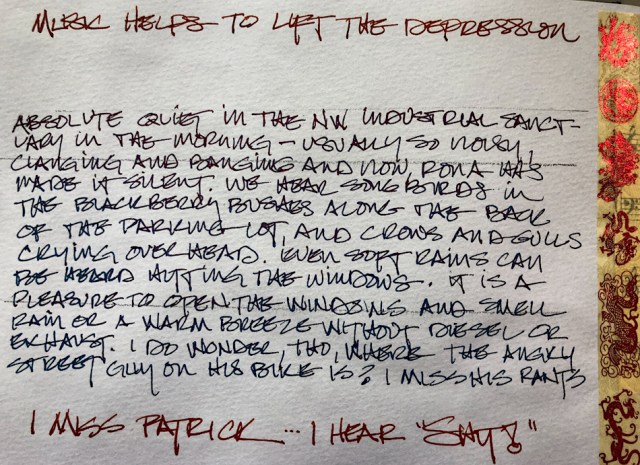 MUSIC HELPS TO LIFT THE DEPRESSION
ABSOLUTE QUIET IN THE NW INDUSTRIAL SANCT-
UARY IN THE MORNING - USUALLY SO NOISY,
CLANGING AND BANGING AND NOW, RONA HAS
MADE IT SILENT. WE HEAR SONG BIRDS IN
THE BLACKBERRY BUSHES ALONG THE BACK
OF THE PARKING LOT, AND CROWS AND GULLS
CRYING OVERHEAD. EVEN SOFT RAINS CAN
BE HEARD HITTING THE WINDOWS. IT IS A
PLEASURE TO OPEN THE WINDOWS AND SMELL
RAIN OR A WARM BREEZE WITHOUT DIESEL OR
EXHAUST. I DO WONDER, THO, WHERE THE ANGRY
STREET GUY ON HIS BIKE IS? I MISS HIS RANTS
I MISS PATRICK... I HEAR "SHY!"